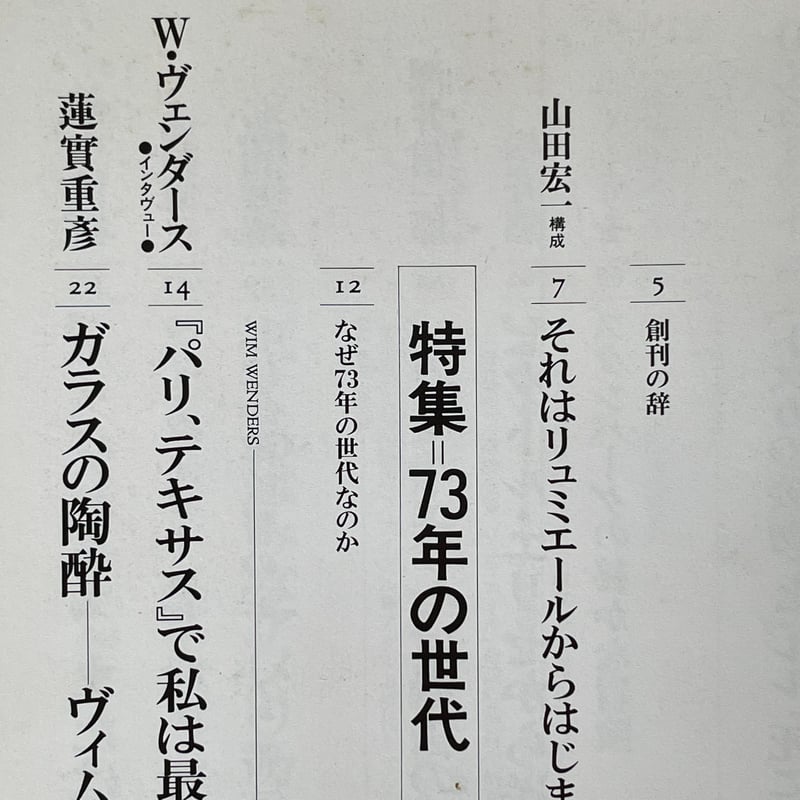 5 創刊の辞
山田宏一 構成 7 それはリュミエールからはじま
特集=73年の世代
12 なぜ73年の世代なのか
WIM WENDERS
W・ヴェンダース ●インタヴュー● 14 『パリ、テキサス』で私は最
蓮實重彥 22 ガラスの陶酔——ヴィム